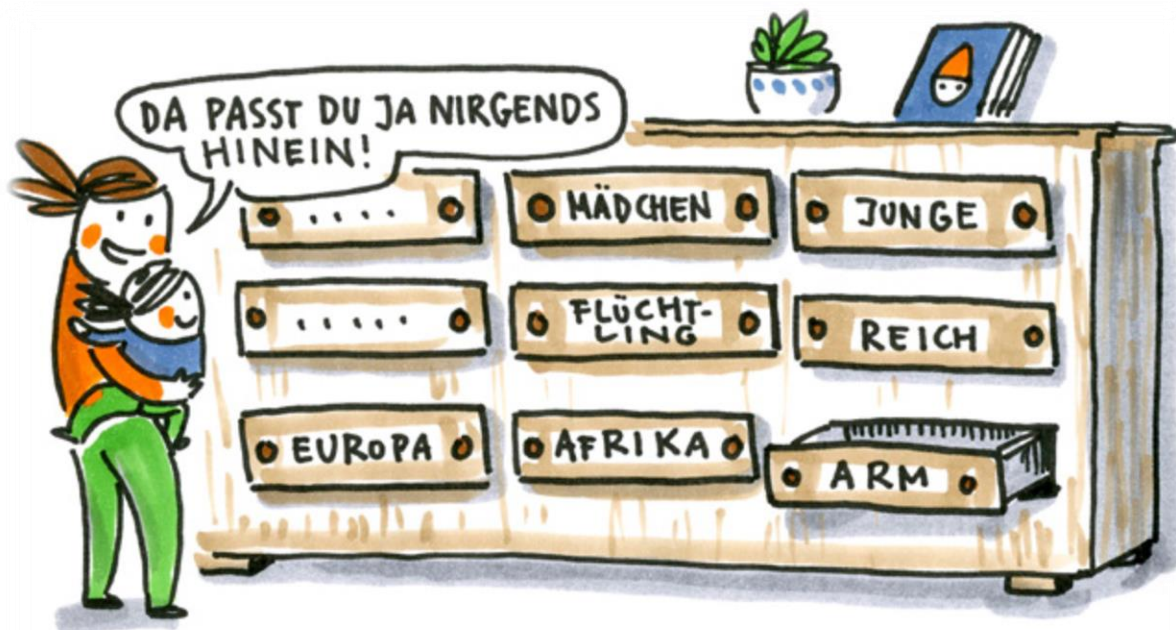 DA PASST DU JA NIRGENDS
HINEIN!
.....
MÄDCHEN
JUNGE
.....
FLÜCHT-
LING
REICH
EUROPA
AFRIKA
ARM